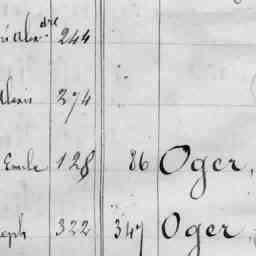 Alex.dre 244
Alexis 274
Emile 128 86 Oger,
seph 322 347 Oger,